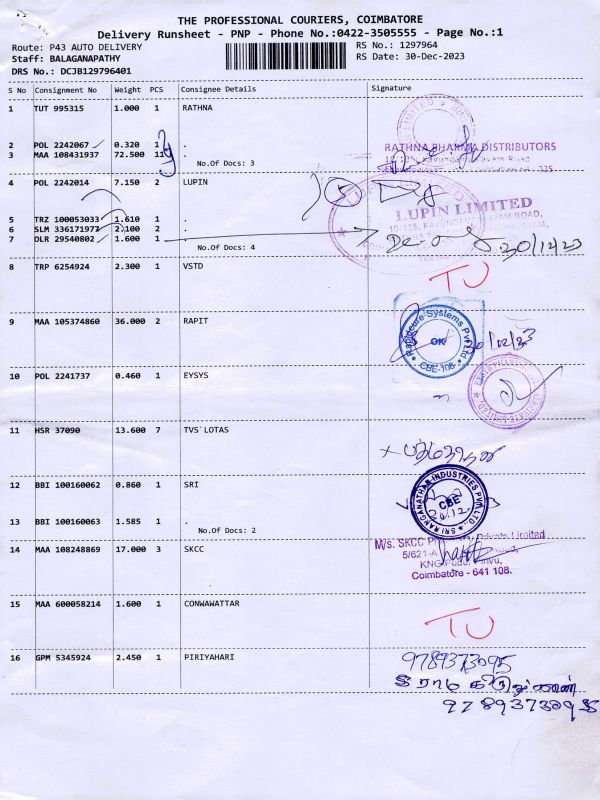 THE PROFESSIONAL COURIERS, COIMBATORE
Delivery Runsheet - PNP - Phone No.:0422-3505555 - Page No.:1
Route: P43 AUTO DELIVERY
RS No.: 1297964
Staff: BALAGANAPATHY
RS Date: 30-Dec-2023
DRS No.: DCJB129796401
S No Consignment No Weight PCS Consignee Details Signature
1 TUT 995315 1.000 1 RATHNA
2 POL 2242067 0.320 1 .
RATHNA PHARMA DISTRIBUTORS
3 MAA 108431937 72.500 11 .
No.Of Docs: 3
4 POL 2242014 7.150 2 LUPIN
LUPIN LIMITED
5 TRZ 100053033 1.610 1 .
6 SLM 336171972 2.100 2 .
7 DLR 29540802 1.600 1 .
No.Of Docs: 4
30/12/23
8 TRP 6254924 2.300 1 VSTD
TU
9 MAA 105374860 36.000 2 RAPIT
Rapidcure Systems Pvt Ltd
OK
CBE-108
10 POL 2241737 0.460 1 EYSYS
11 HSR 37090 13.600 7 TVS LOTAS
12 BBI 100160062 0.860 1 SRI
SRI RANGANATHAR INDUSTRIES PVT. LTD.
CBE
13 BBI 100160063 1.585 1 .
No.Of Docs: 2
14 MAA 108248869 17.000 3 SKCC
M/s. SKCC Private Limited
5/621-A
KNG Pudur Pirivu,
Coimbatore - 641 108.
15 MAA 600058214 1.600 1 CONWAWATTAR
TU
16 GPM 5345924 2.450 1 PIRIYAHARI
9789373095
9789373095